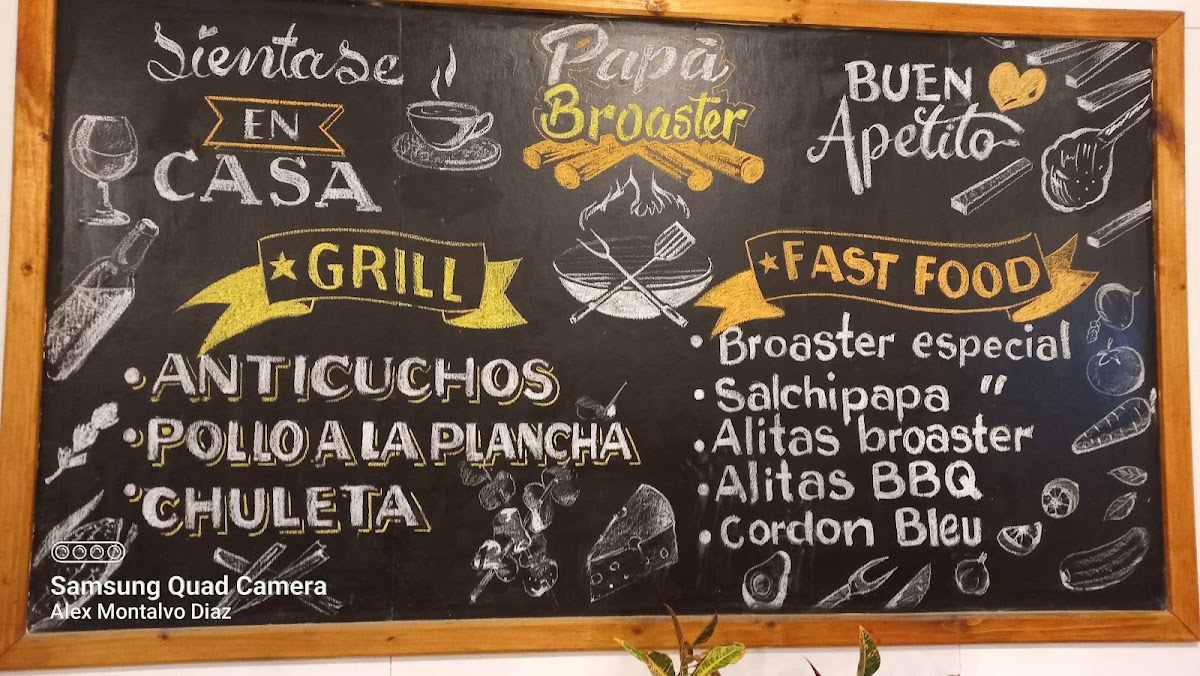 Sientase
EN
CASA
Papà
Broaster
BUEN
Apetito
GRILL
• ANTICUCHOS
• POLLO A LA PLANCHA
• CHULETA
FAST FOOD
• Broaster especial
• Salchipapa "
• Alitas broaster
• Alitas BBQ
• Cordon Bleu
Samsung Quad Camera
Alex Montalvo Diaz